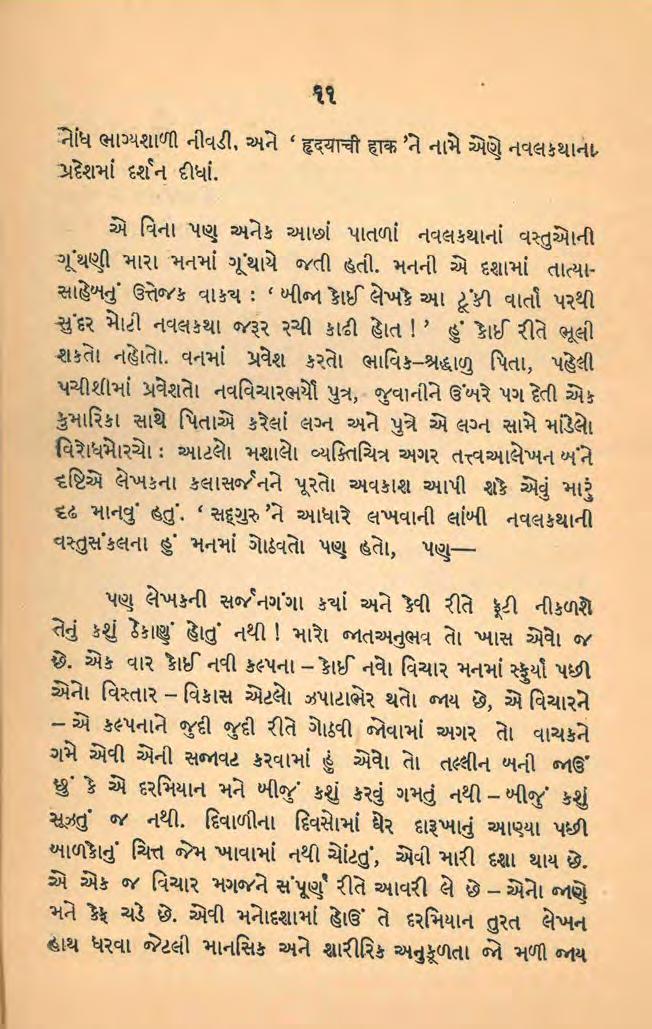 ૧૧
નોંધ ભાગ્યશાળી નીવડી, અને ‘ हृदयाची हाक ’ને નામે એણે નવલકથાના
પ્રદેશમાં દર્શન દીધાં.
એ વિના પણ અનેક આછાં પાતળાં નવલકથાનાં વસ્તુઓની
ગૂંથણી મારા મનમાં ગૂંથાયે જતી હતી. મનની એ દશામાં તાત્યા-
સાહેબનું ઉત્તેજક વાક્ય : ‘ બીજા કોઈ લેખકે આ ટૂંકી વાર્તા પરથી
સુંદર મોટી નવલકથા જરૂર રચી કાઢી હોત ! ’ હું કોઈ રીતે ભૂલી
શકતો નહોતો. વનમાં પ્રવેશ કરતો ભાવિક–શ્રદ્ધાળુ પિતા, પહેલી
પચીશીમાં પ્રવેશતો નવવિચારભર્યો પુત્ર, જુવાનીને ઉંબરે પગ દેતી એક
કુમારિકા સાથે પિતાએ કરેલાં લગ્ન અને પુત્રે એ લગ્ન સામે માંડેલો
વિરોધમોરચો : આટલો મશાલો વ્યક્તિચિત્ર અગર તત્ત્વઆલેખન બંને
દૃષ્ટિએ લેખકના કલાસર્જનને પૂરતો અવકાશ આપી શકે એવું મારું
દૃઢ માનવું હતું. ‘ સદ્‌ગુરુ ’ને આધારે લખવાની લાંબી નવલકથાની
વસ્તુસંકલના હું મનમાં ગોઠવતો પણ હતો, પણ—
પણ લેખકની સર્જનગંગા કયાં અને કેવી રીતે ફૂટી નીકળશે
તેનું કશું ઠેકાણું હોતું નથી ! મારો જાતઅનુભવ તો ખાસ એવો જ
છે. એક વાર કોઈ નવી કલ્પના – કોઈ નવો વિચાર મનમાં સ્ફુર્યા પછી
એનો વિસ્તાર – વિકાસ એટલો ઝપાટાભેર થતો જાય છે, એ વિચારને
– એ કલ્પનાને જુદી જુદી રીતે ગોઠવી જોવામાં અગર તો વાચકને
ગમે એવી એની સજાવટ કરવામાં હું એવો તો તલ્લીન બની જાઉં
છું કે એ દરમિયાન મને બીજું કશું કરવું ગમતું નથી – બીજું કશું
સૂઝતું જ નથી. દિવાળીના દિવસોમાં ઘેર દારૂખાનું આણ્યા પછી
બાળકોનું ચિત્ત જેમ ખાવામાં નથી ચોંટતું, એવી મારી દશા થાય છે.
એ એક જ વિચાર મગજને સંપૂર્ણ રીતે આવરી લે છે – એનો જાણે
મને કેફ ચડે છે. એવી મનોદશામાં હોઉં તે દરમિયાન તુરત લેખન
હાથ ધરવા જેટલી માનસિક અને શારીરિક અનુકૂળતા જો મળી જાય